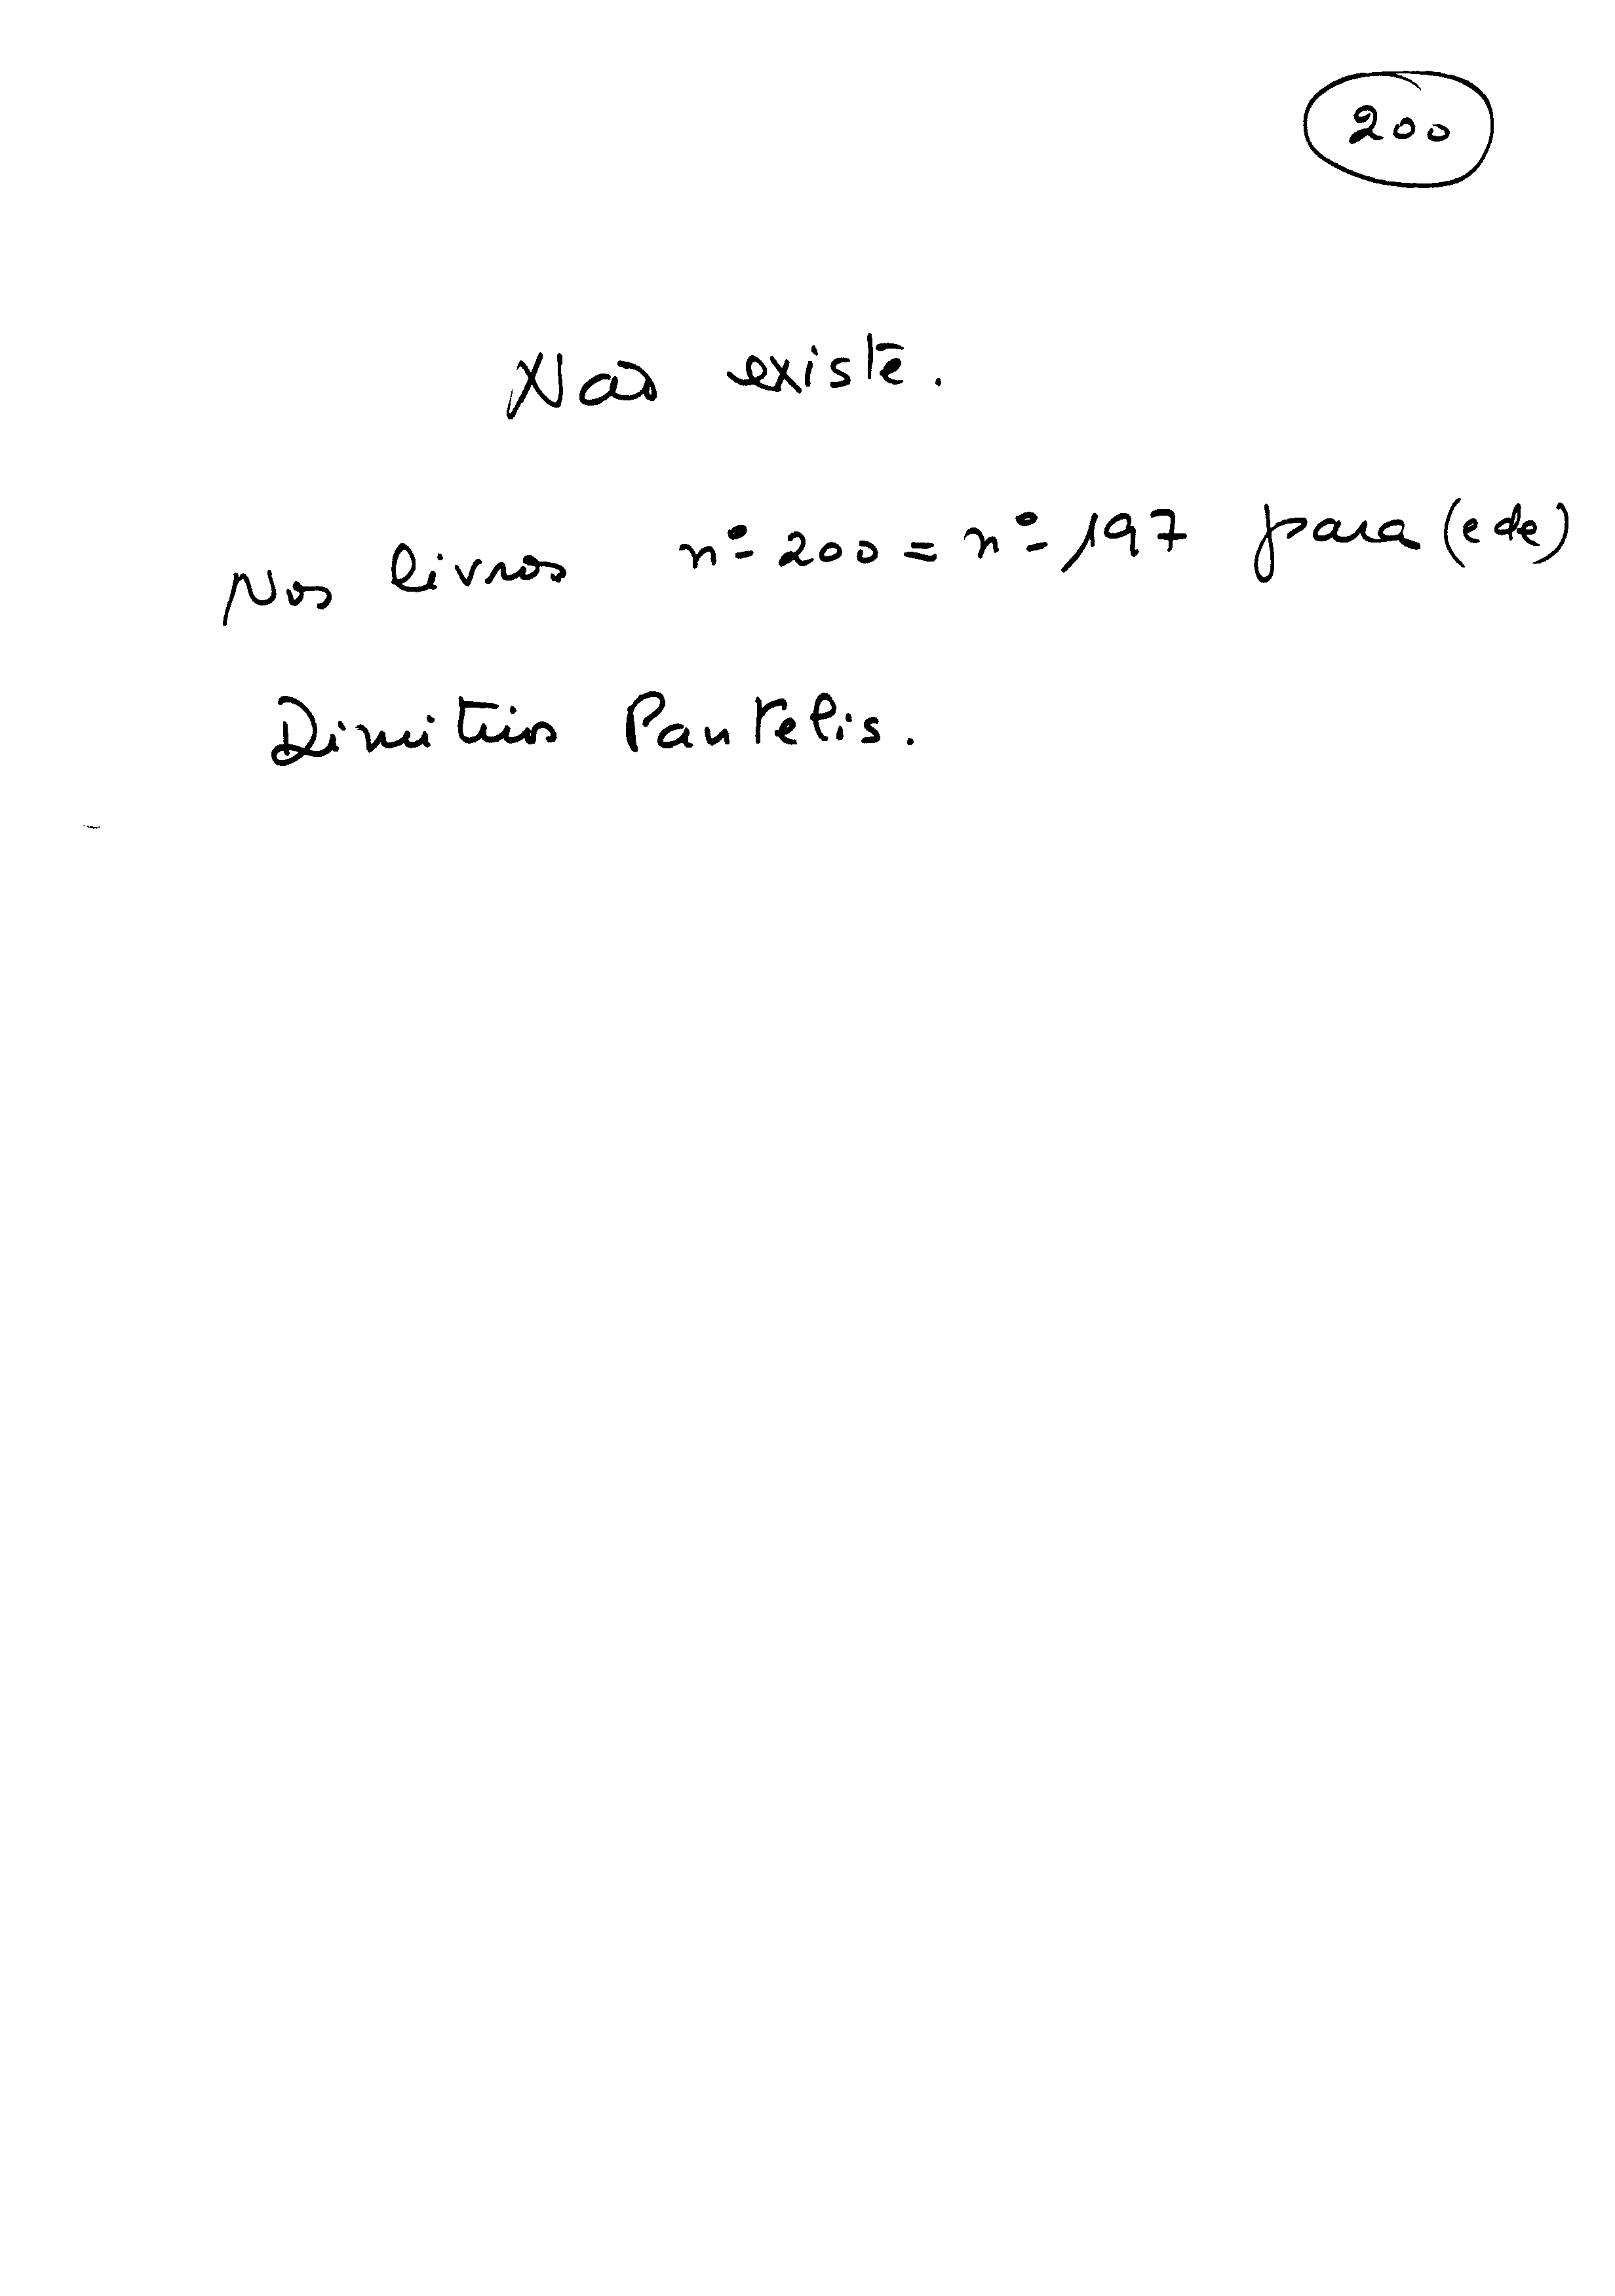 200
Não existe.
Nos livros nº 200 = nº 197 para (e de)
Dimitrios Pantelis.